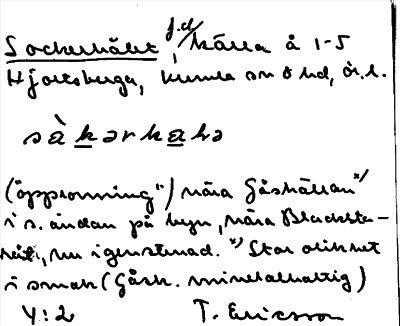 Sockerhålet, f.d. källa å 1-5
Hjortsberga, Kumla sn o hd, ör. l.
sà kərkahə
("öppronning") nära Gåskällan x)
i s. ändan på byn, nära Blacksta-
, nu igenstenad. x) Stor olikhet
i smak (Gåsk. mineralhaltig)
Y: 2 T. Ericsson